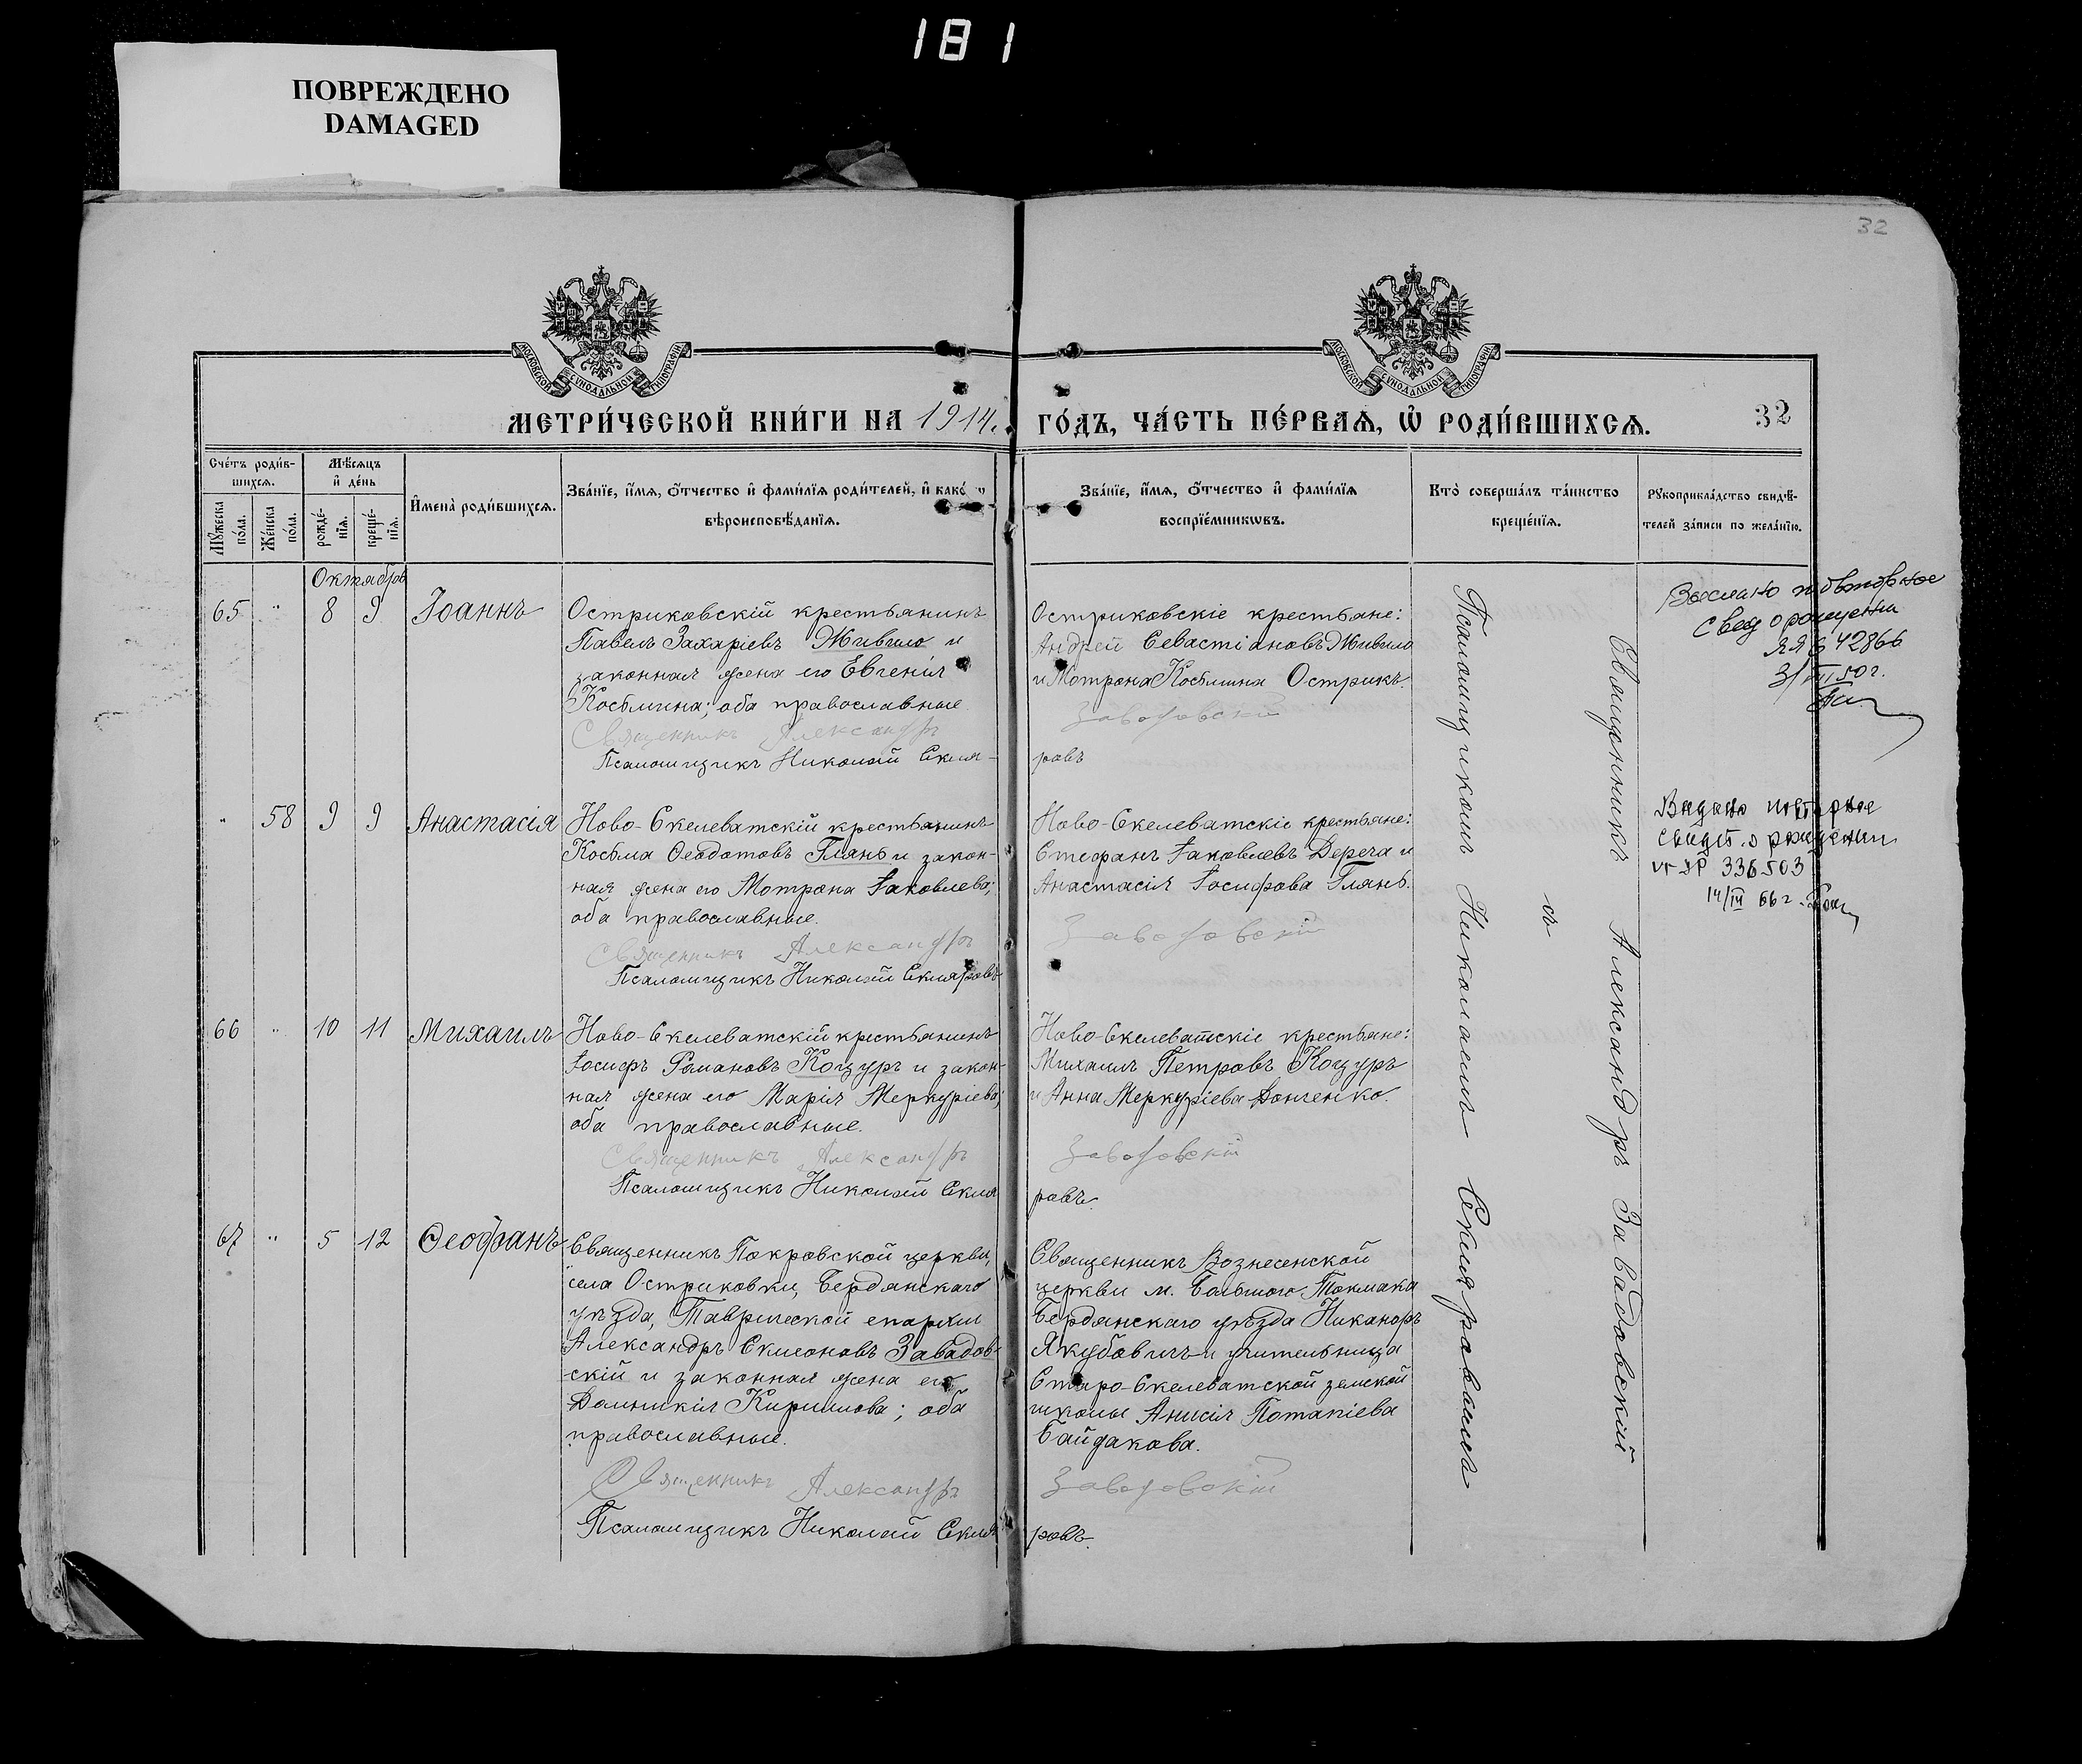 181
ПОВРЕЖДЕНО
DAMAGED
32
МОСКОВСКОЙ СѴНОДАЛЬНОЙ ТИПОГРАФІИ
МОСКОВСКОЙ СѴНОДАЛЬНОЙ ТИПОГРАФІИ
МЕТРИ́ЧЕСКОЙ КНИ́ГИ НА 1914 г.
ГО́ДЪ, ЧА́СТЬ ПЕ́РВАѦ, Ѡ҆ РОДИ́ВШИХСѦ.
32
Сче́тъ роди́в-
шихсѧ.
Мѣ́сѧцъ
и҆ де́нь
Мꙋ́жеска
по́ла.
Же́нска
по́ла.
рожде́-
нїѧ.
креще́-
нїѧ.
И҆мена̀ роди́вшихсѧ.
Зва́нїе, и҆́мѧ, ѻ҆́тчество и҆ фами́лїѧ роди́телей, и҆ како́
вѣроисповѣ́данїѧ.
Зва́нїе, и҆́мѧ, ѻ҆́тчество и҆ фами́лїѧ
воспрїе́мникѡвъ.
Кто̀ соверша́лъ та́инство
креще́нїѧ.
Рꙋкоприкла́дство свидѣ́-
телей за́писи по жела́нїю.
Октябрь
65 " 8 9 Іоаннъ
Остриковскій крестьянинъ
Павелъ Захаріевъ Живило и
законная жена его Евгенія
Косьмина; оба православные
Священникъ Александръ
Псаломщикъ Николай Скля-
Остриковскіе крестьяне:
Андрей Севастіановъ Живило
и Мотрона Косьмина Острикъ.
Заводовскій
ровъ
Выслано повторное
свид о рождении
ЯЯ 42866
3/VII 50 г.
" 58 9 9 Анастасія
Ново-Скелеватскій крестьянинъ
Косьма Ѳеодотовъ Глянь и закон-
ная жена его Мотрона Іаковлева;
оба православные.
Священникъ Александръ
Псаломщикъ Николай Скляровъ
Ново-Скелеватскіе крестьяне:
Стефанъ Іаковлевъ Дереча и
Анастасія Іосифова Глянь.
Заводовскій
Видано повторное
свидет. о рождении
336503
14/III 66 г.
66 " 10 11 Михаилъ
Ново-Скелеватскій крестьянинъ
Іосифъ Романовъ Коцуръ и закон-
ная жена его Марія Меркуріева;
оба православные.
Священникъ Александръ
Псаломщикъ Николай Скля
Ново-Скелеватскіе крестьяне:
Михаилъ Петровъ Коцуръ
и Анна Меркуріева Донченко.
Заводовскій
ровъ.
67 " 5 12 Ѳеофанъ
Священникъ Покровской церкви,
села Остриковки, Бердянскаго
уѣзда, Таврической епархіи
Александръ Симоновъ Завадов-
скій и законная жена его
Домникія Кириллова; оба
православные.
Священникъ Александръ
Псаломщикъ Николай Скля
Священникъ Вознесенской
церкви м. Большого Токмака
Бердянскаго уѣзда Никаноръ
Якубовичъ и учительница
Старо-Скелеватской земской
школы Анисія Потапіева
Байдакова.
Заводовскій
ровъ.
Священникъ Александръ Завадовскій
съ
Псаломщикомъ Николаемъ Скляровымъ